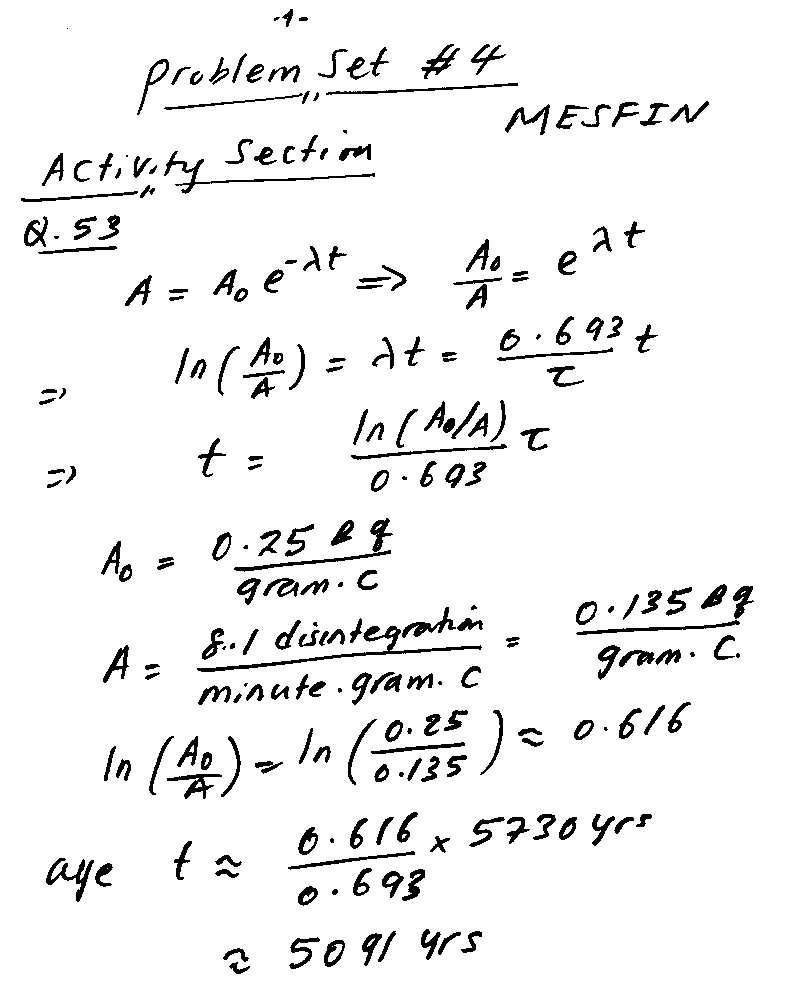 -1-
Problem Set #4
MESFIN
Activity Section
Q.53
A = A₀ e^-λt => A₀/A = e^λt
=> ln(A₀/A) = λt = 0.693/τ t
=> t = ln(A₀/A)/0.693 τ
A₀ = 0.25 Bq/gram.C
A = 8.1 disintegration/minute.gram.C = 0.135 Bq/gram.C.
ln(A₀/A) = ln(0.25/0.135) ≈ 0.616
age t ≈ 0.616/0.693 x 5730 yrs
≈ 5091 yrs